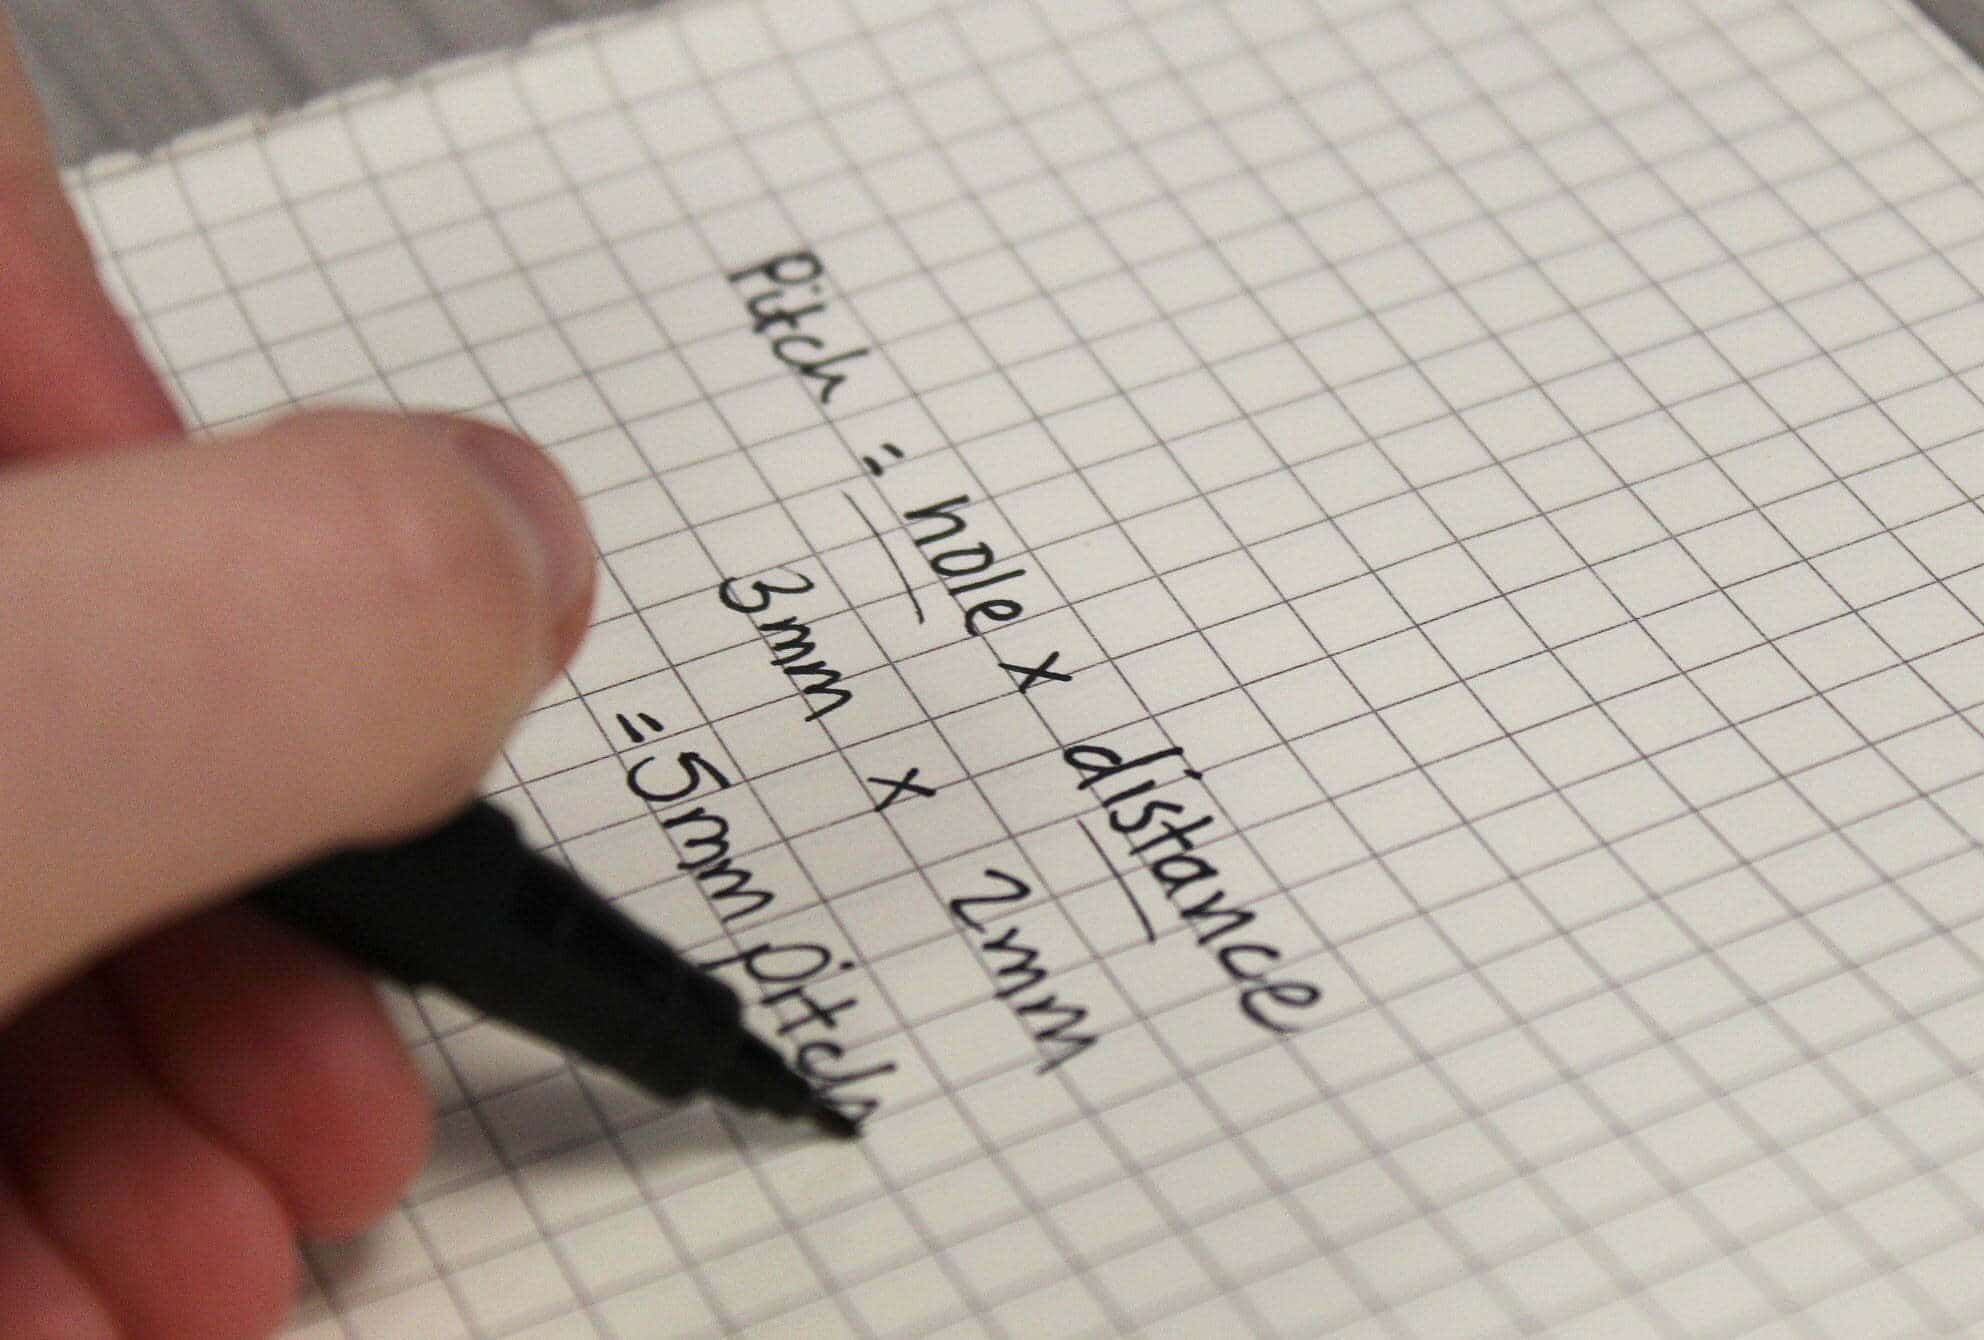 Pitch = hole x distance
3mm x 2mm
= 5mm pitch